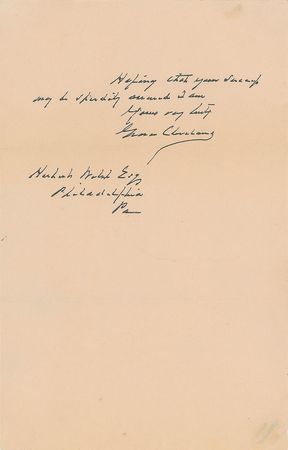 Hoping that your success
may be speedily assured I am
Yours very truly
Grover Cleveland
Herbert Welsh Esq
Philadelphia
Pa